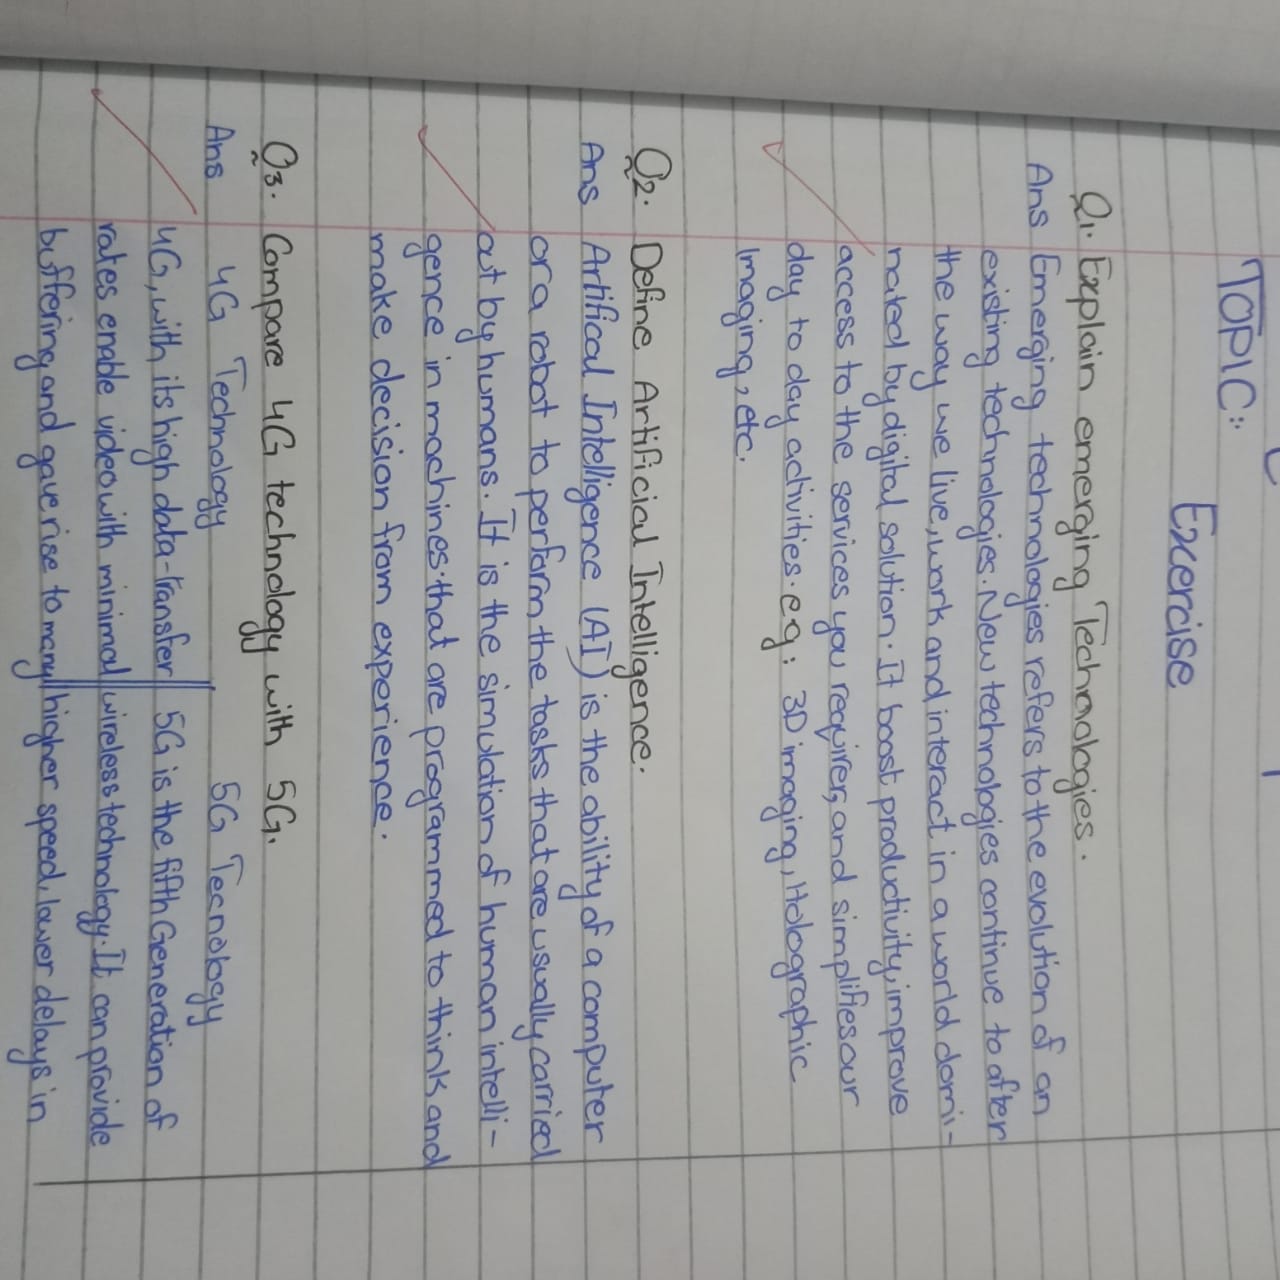 TOPIC:
Excercise
Q1. Explain emerging Technologies.
Ans Emerging technologies refers to the evolution of an
existing technologies. New technologies continue to after
the way we live, work and interact in a world domi-
nated by digital solution. It boost productivity, improve
access to the services you requires, and simplifies our
day to day activities. eg: 3D imaging, Holographic
Imaging, etc.
Q2. Define Artificial Intelligence.
Ans Artifical Intelligence (AI) is the ability of a computer
or a robot to perform the tasks that are usually carried
out by humans. It is the simulation of human intelli-
gence in machines that are programmed to think and
make decision from experience.
Q3. Compare 4G technology with 5G.
Ans 4G Technology 5G Tecnology
4G, with its high data-transfer 5G is the fifth Generation of
rates enable video with minimal wireless technology. It can provide
buffering and gave rise to many higher speed, lower delays in